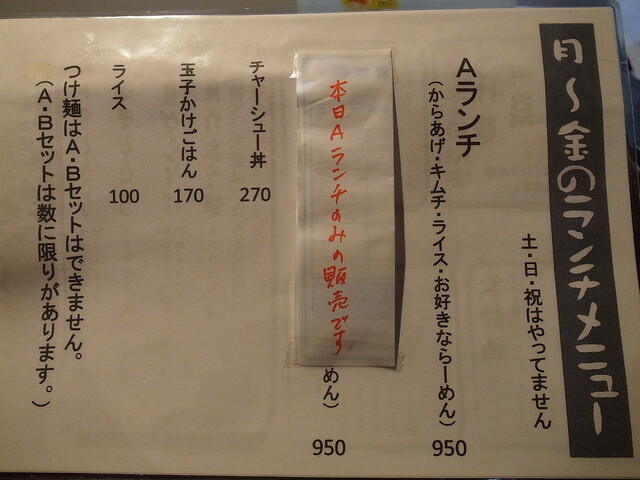 月〜金のランチメニュー
土・日・祝はやってません
Aランチ 950
(からあげ・キムチ・ライス・お好きならーめん)
本日Aランチのみの販売です
めん) 950
チャーシュー丼 270
玉子かけごはん 170
ライス 100
つけ麺はA・Bセットはできません。
(A・Bセットは数に限りがあります。)